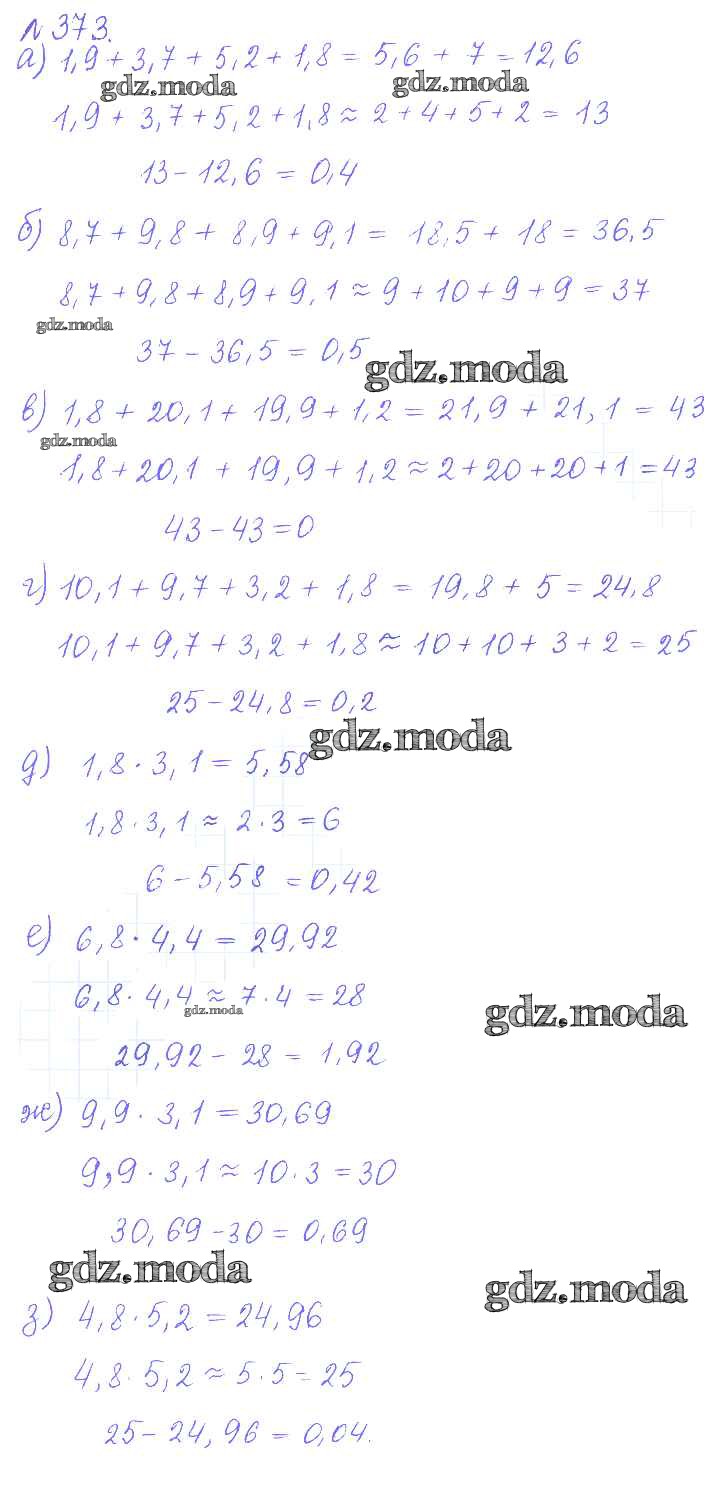 №373.
а) 1,9 + 3,7 + 5,2 + 1,8 = 5,6 + 7 = 12,6
gdz.moda gdz.moda
1,9 + 3,7 + 5,2 + 1,8 ≈ 2 + 4 + 5 + 2 = 13
13 - 12,6 = 0,4
б) 8,7 + 9,8 + 8,9 + 9,1 = 18,5 + 18 = 36,5
8,7 + 9,8 + 8,9 + 9,1 ≈ 9 + 10 + 9 + 9 = 37
gdz.moda
37 - 36,5 = 0,5
gdz.moda
в) 1,8 + 20,1 + 19,9 + 1,2 = 21,9 + 21,1 = 43
gdz.moda
1,8 + 20,1 + 19,9 + 1,2 ≈ 2 + 20 + 20 + 1 = 43
43 - 43 = 0
г) 10,1 + 9,7 + 3,2 + 1,8 = 19,8 + 5 = 24,8
10,1 + 9,7 + 3,2 + 1,8 ≈ 10 + 10 + 3 + 2 = 25
25 - 24,8 = 0,2
gdz.moda
д) 1,8 · 3,1 = 5,58
1,8 · 3,1 ≈ 2 · 3 = 6
6 - 5,58 = 0,42
е) 6,8 · 4,4 = 29,92
6,8 · 4,4 ≈ 7 · 4 = 28
gdz.moda
gdz.moda
29,92 - 28 = 1,92
ж) 9,9 · 3,1 = 30,69
9,9 · 3,1 ≈ 10 · 3 = 30
30,69 - 30 = 0,69
gdz.moda
gdz.moda
з) 4,8 · 5,2 = 24,96
4,8 · 5,2 ≈ 5 · 5 = 25
25 - 24,96 = 0,04.